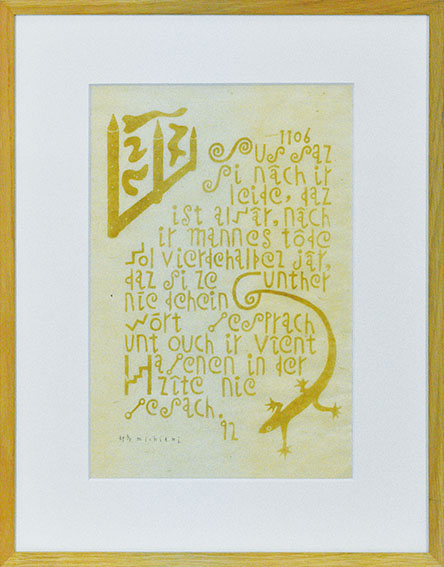 1106
Sus saz
si nâch ir
leide, daz
ist alwâr, nâch
ir mannes tôde
wol vierdehalbez jâr,
daz si ze Gunther
nîe dehein
wôrt gesprach
unt ouch ir vîent
Hagenen in der
zîte nie
gesach.
92